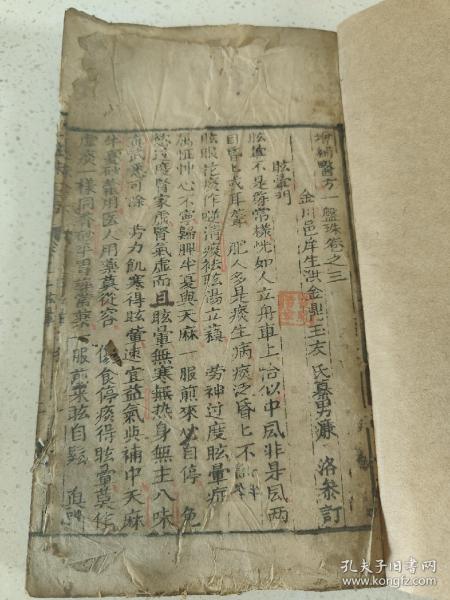 增補醫方一盤珠卷之三
金川邑庠生洪金鼎玉友氏纂男濂 洛參訂
眩暈門
眩暈不是尋常樣恍如人立舟車上恰似中風非是風兩
目昏七或耳聾 肥人多是痰生病痰泛昏七不
眩眼花痰作嘔清痰袪眩湯立 勞神過度眩暈症
怔忡心不寧歸脾半夏與天麻一服煎來必自停
慾過度腎家虛腎氣虛而且眩暈無寒無热身無主八味
寒可除 力飢寒得眩暈速宜益氣與補中天麻
半夏 用医人用藥莫從容 傷食停痰得眩暈莫作
虛痰一樣同 平胃 一服煎來眩自鬆
孔夫子旧书网
www.kongfz.com